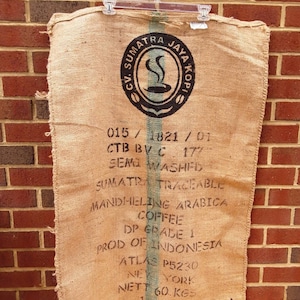 CV. SUMATRA JAYA KOPI
015 / 1821 / 01
CTB BV C 177
SEMI WASHED
SUMATRA TRACEABLE
MANDHELING ARABICA
COFFEE
DP GRADE 1
PROD OF INDONESIA
ATLAS P5230
NEW YORK
NETT 60 KGS